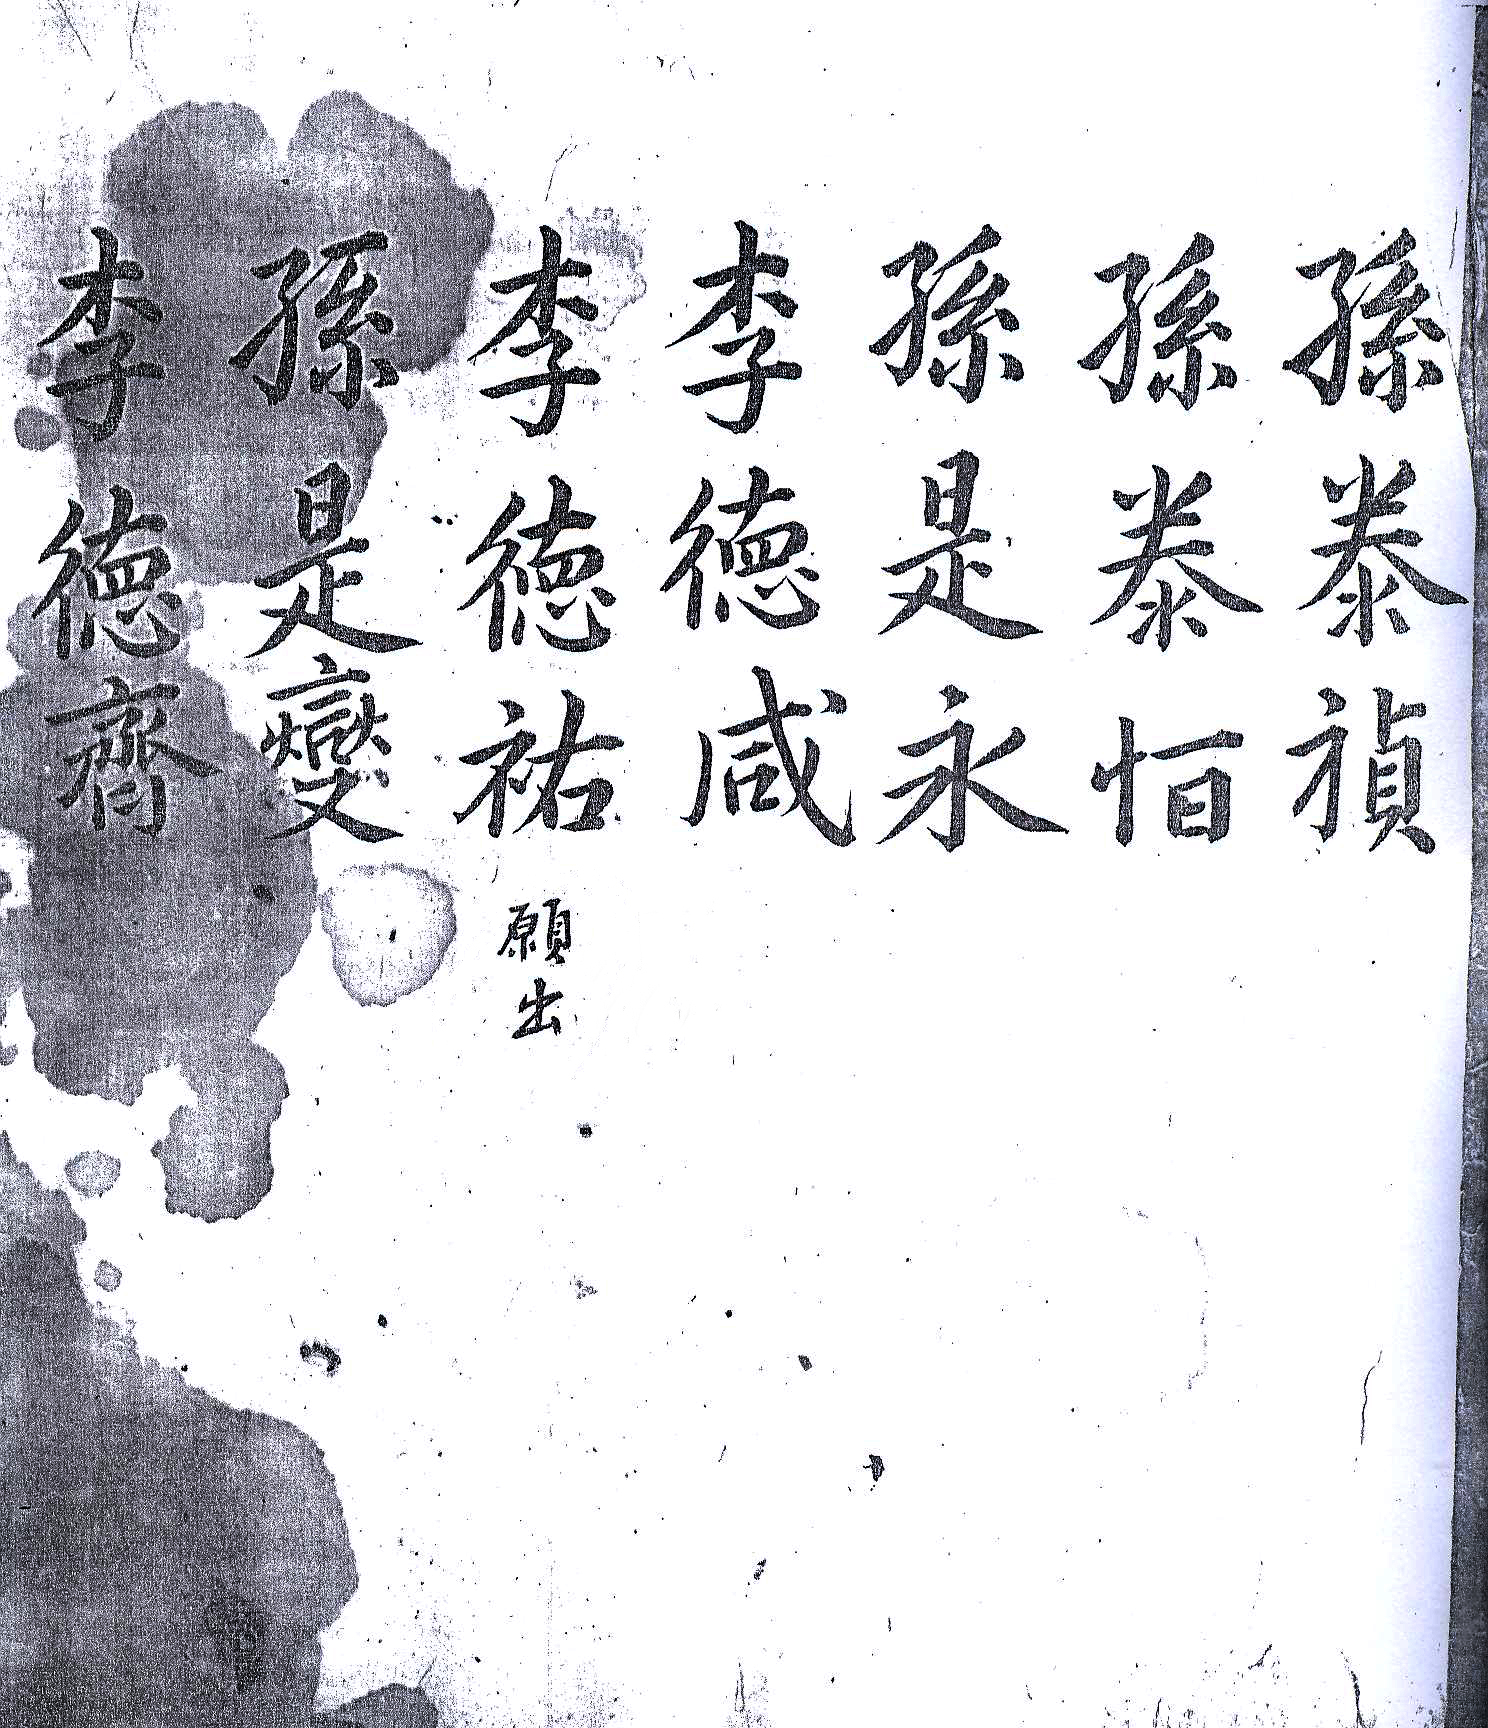 孫泰禎
孫泰恒
孫是永
李德咸
李德祐 願出
孫是燮
李德齊